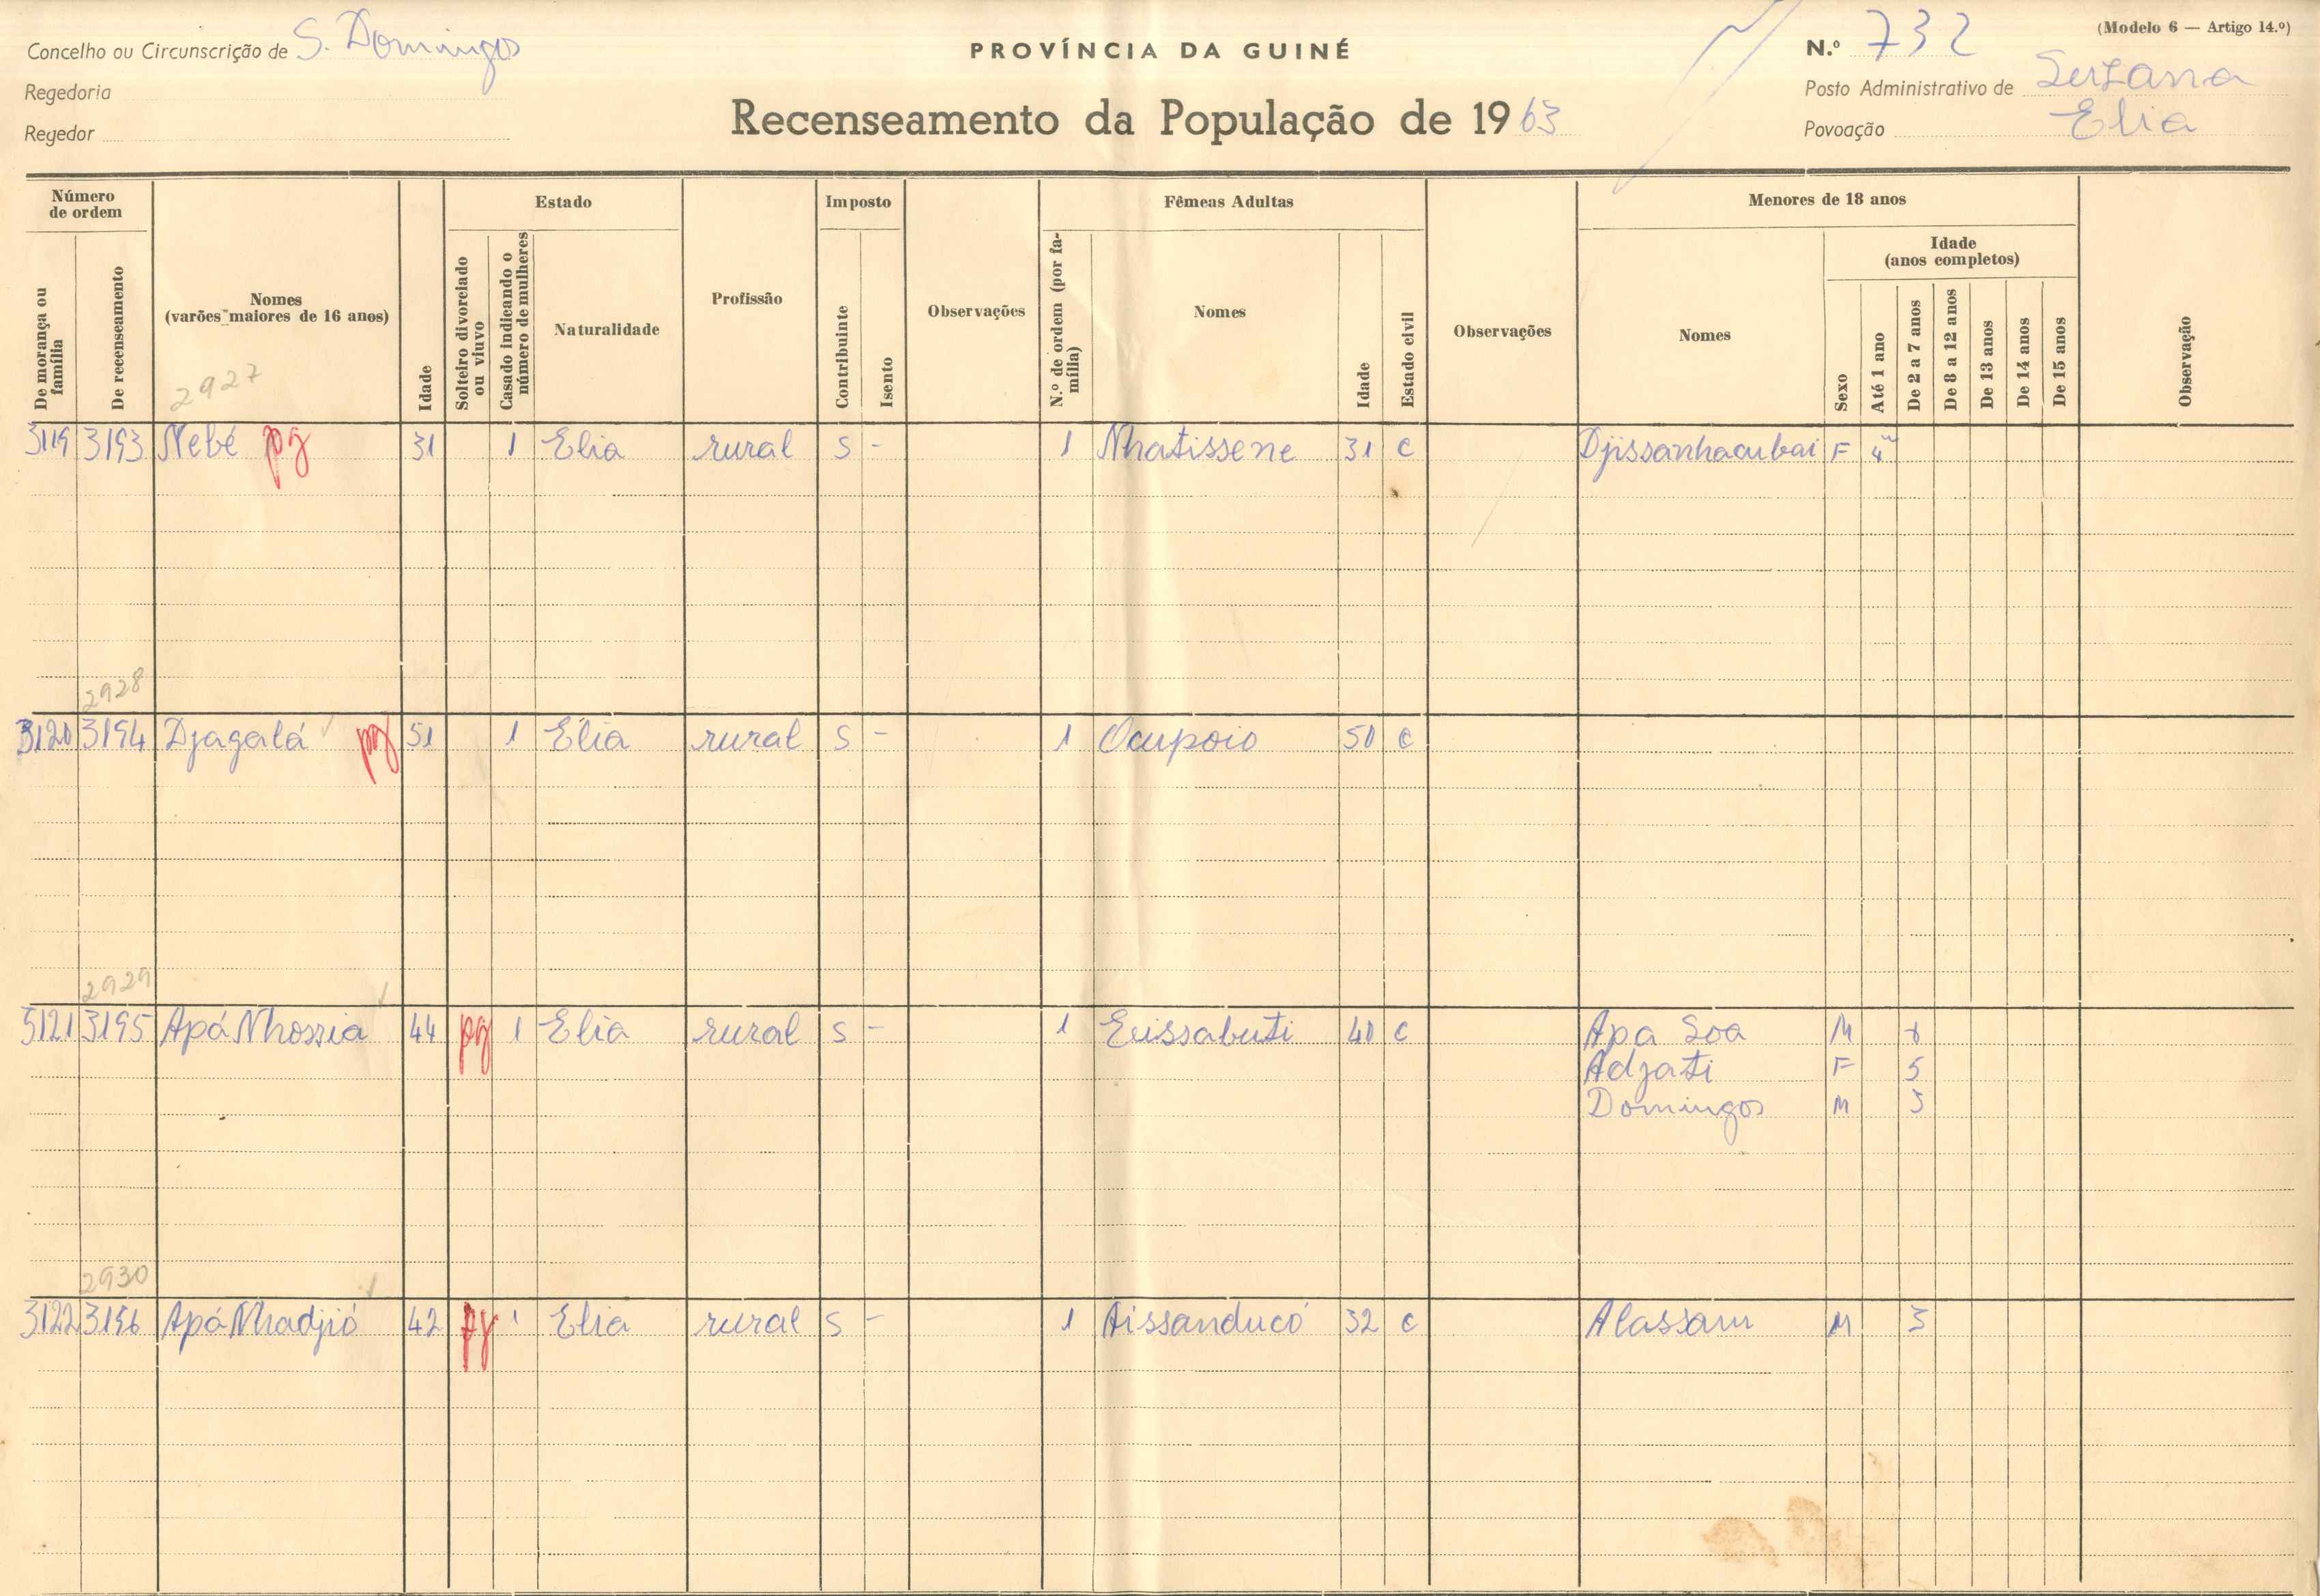 (Modelo 6 — Artigo 14.º)
Concelho ou Circunscrição de S. Domingos
PROVÍNCIA DA GUINÉ
N.º 732
Regedoria
Posto Administrativo de Suzana
Regedor
Recenseamento da População de 1963
Povoação Elia
Número de ordem
Estado
Imposto
Fêmeas Adultas
Menores de 18 anos
De morança ou família
De recenseamento
Nomes
(varões maiores de 16 anos)
Idade
Solteiro divorciado ou viuvo
Casado indicando o número de mulheres
Naturalidade
Profissão
Contribuinte
Isento
Observações
N.º de ordem (por família)
Nomes
Idade
Estado civil
Observações
Nomes
Sexo
Idade
(anos completos)
Até 1 ano
De 2 a 7 anos
De 8 a 12 anos
De 13 anos
De 14 anos
De 15 anos
Observação
2927
3119 3193 Nebé pg 31 1 Elia rural S - 1 Nhatissene 31 C Djissanhacubai F 4m
2928
3120 3194 Djagalá pg 51 1 Elia rural S - 1 Ocupoio 50 C
2929
3121 3195 Apá Nhossia 44 pg 1 Elia rural S - 1 Eussabuti 40 C Apa Soa M
Adjati F 5
Domingos M 3
2930
3122 3196 Apá Nhadjió 42 pg 1 Elia rural S - 1 Aissanducó 32 C Alassam M 3